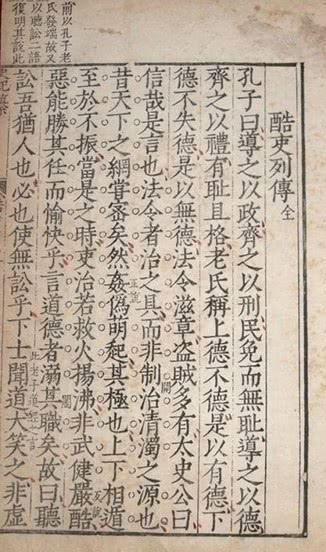 酷吏列傳全
孔子曰導之以政齊之以刑民免而無耻導之以德
齊之以禮有耻且格老氏稱上德不德是以有德下
德不失德是以無德法令滋章盗賊多有太史公曰
信哉是言也法令者治之具而非制治清濁之源也
昔天下之網嘗密矣然姦偽萌起其極也上下相遁
至於不振當是之時吏治若救火揚沸非武健嚴酷
惡能勝其任而愉快乎言道德者溺其職矣故曰聽
訟吾猶人也必也使無訟乎下士聞道大笑之非虚
前以孔子老
氏發端故又
以聽訟二語
復明其說此